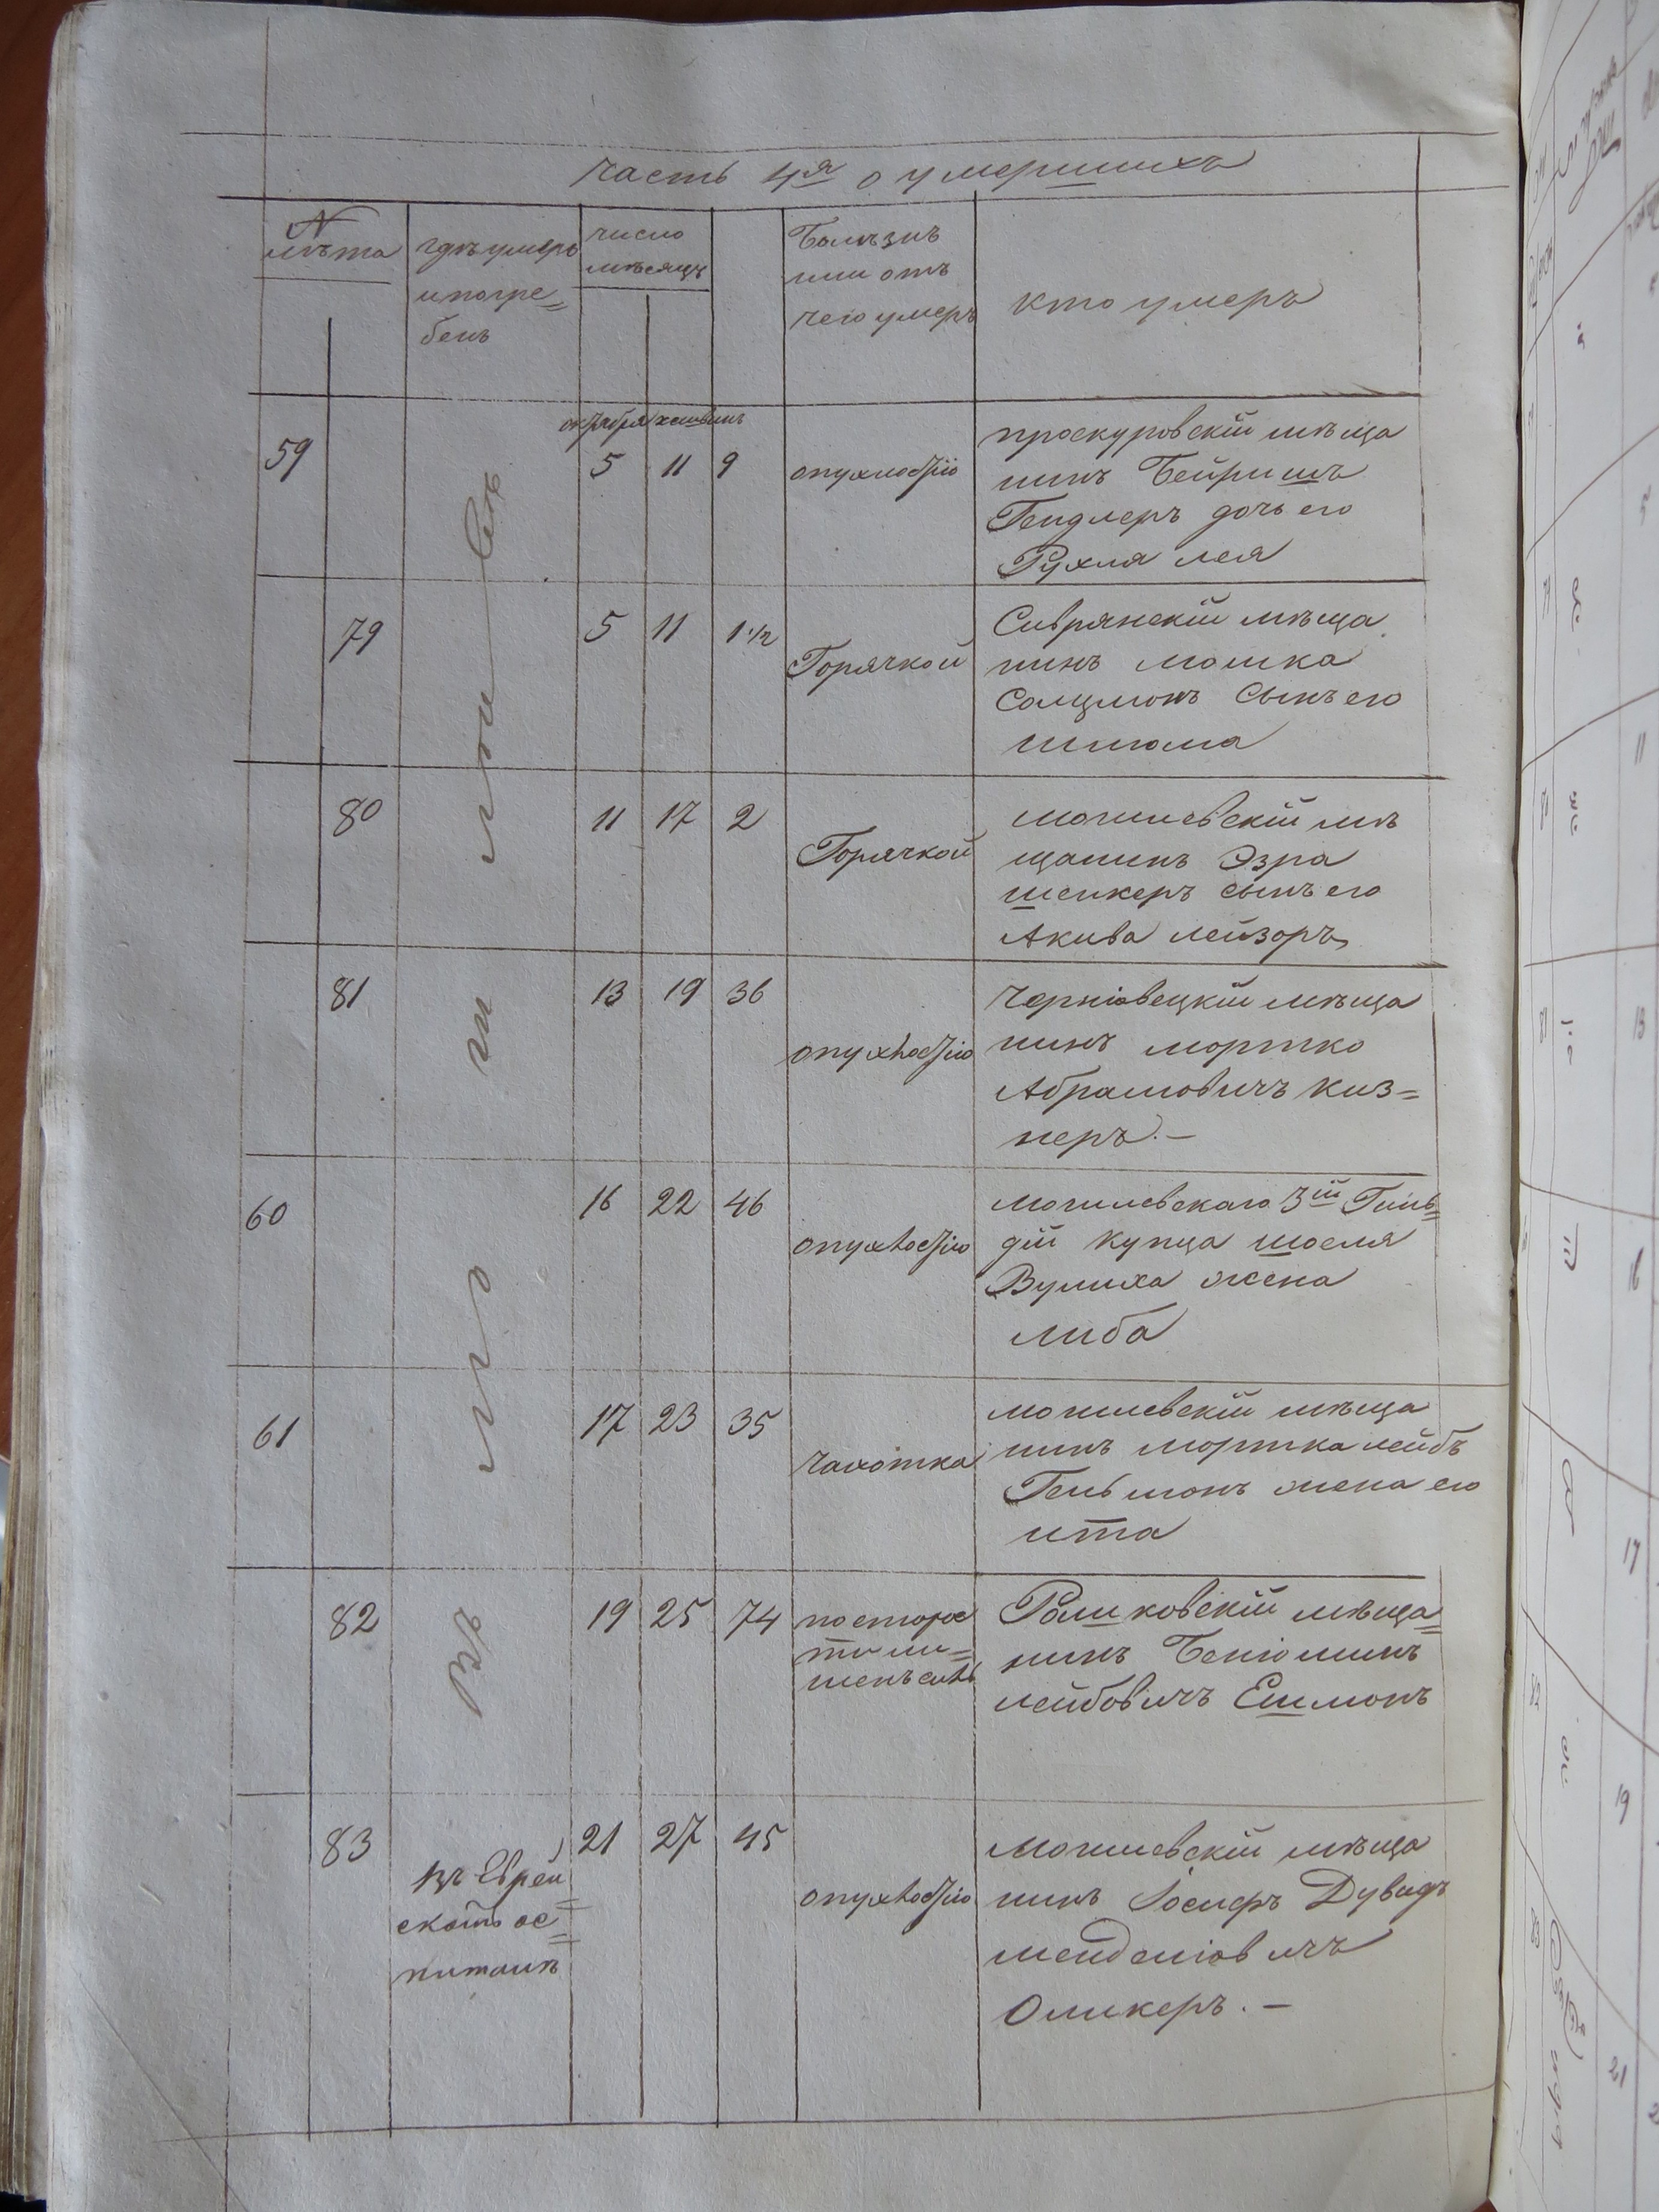 Часть 4я о умершихъ
№
лѣта
гдѣ умеръ
и погре=
бенъ
число
мѣсяцъ
Болѣзнь
или отъ
чего умеръ
кто умеръ
октября хешвинъ
59
5 11 9
опухлостію
проскуровскій мѣща
нинъ Бейришъ
Гендлеръ дочь его
Рухля лея
79
5 11 1 1/2
Горячкой
Саврянскій мѣща
нинъ мошка
Солцмонъ Сынъ его
шлюма
80
11 17 2
Горячкой
могилевскій мѣ
щанинъ Эзра
шенкеръ сынъ его
Акива лейзоръ
81
13 19 36
опухлостію
Черніовецкій мѣща
нинъ мортко
Абрамовичъ киз=
неръ. —
60
16 22 46
опухлостію
могилевскаго 3ій Гиль=
дій купца шоеля
Вулиха жена
либа
61
17 23 35
Чахотка
могилевскій мѣща
нинъ мортка лейбъ
Гельмонъ жена его
ита
82
19 25 74
Рашковскій мѣща=
нинъ Беніоминъ
лейбовичъ Ешмонъ
Въ могилевѣ
83
въ Еврей=
ской ос=
питалѣ
21 27 45
опухлостію
могилевскій мѣща
нинъ Іосифъ Дувидъ
менделіовичъ
Оликеръ. —